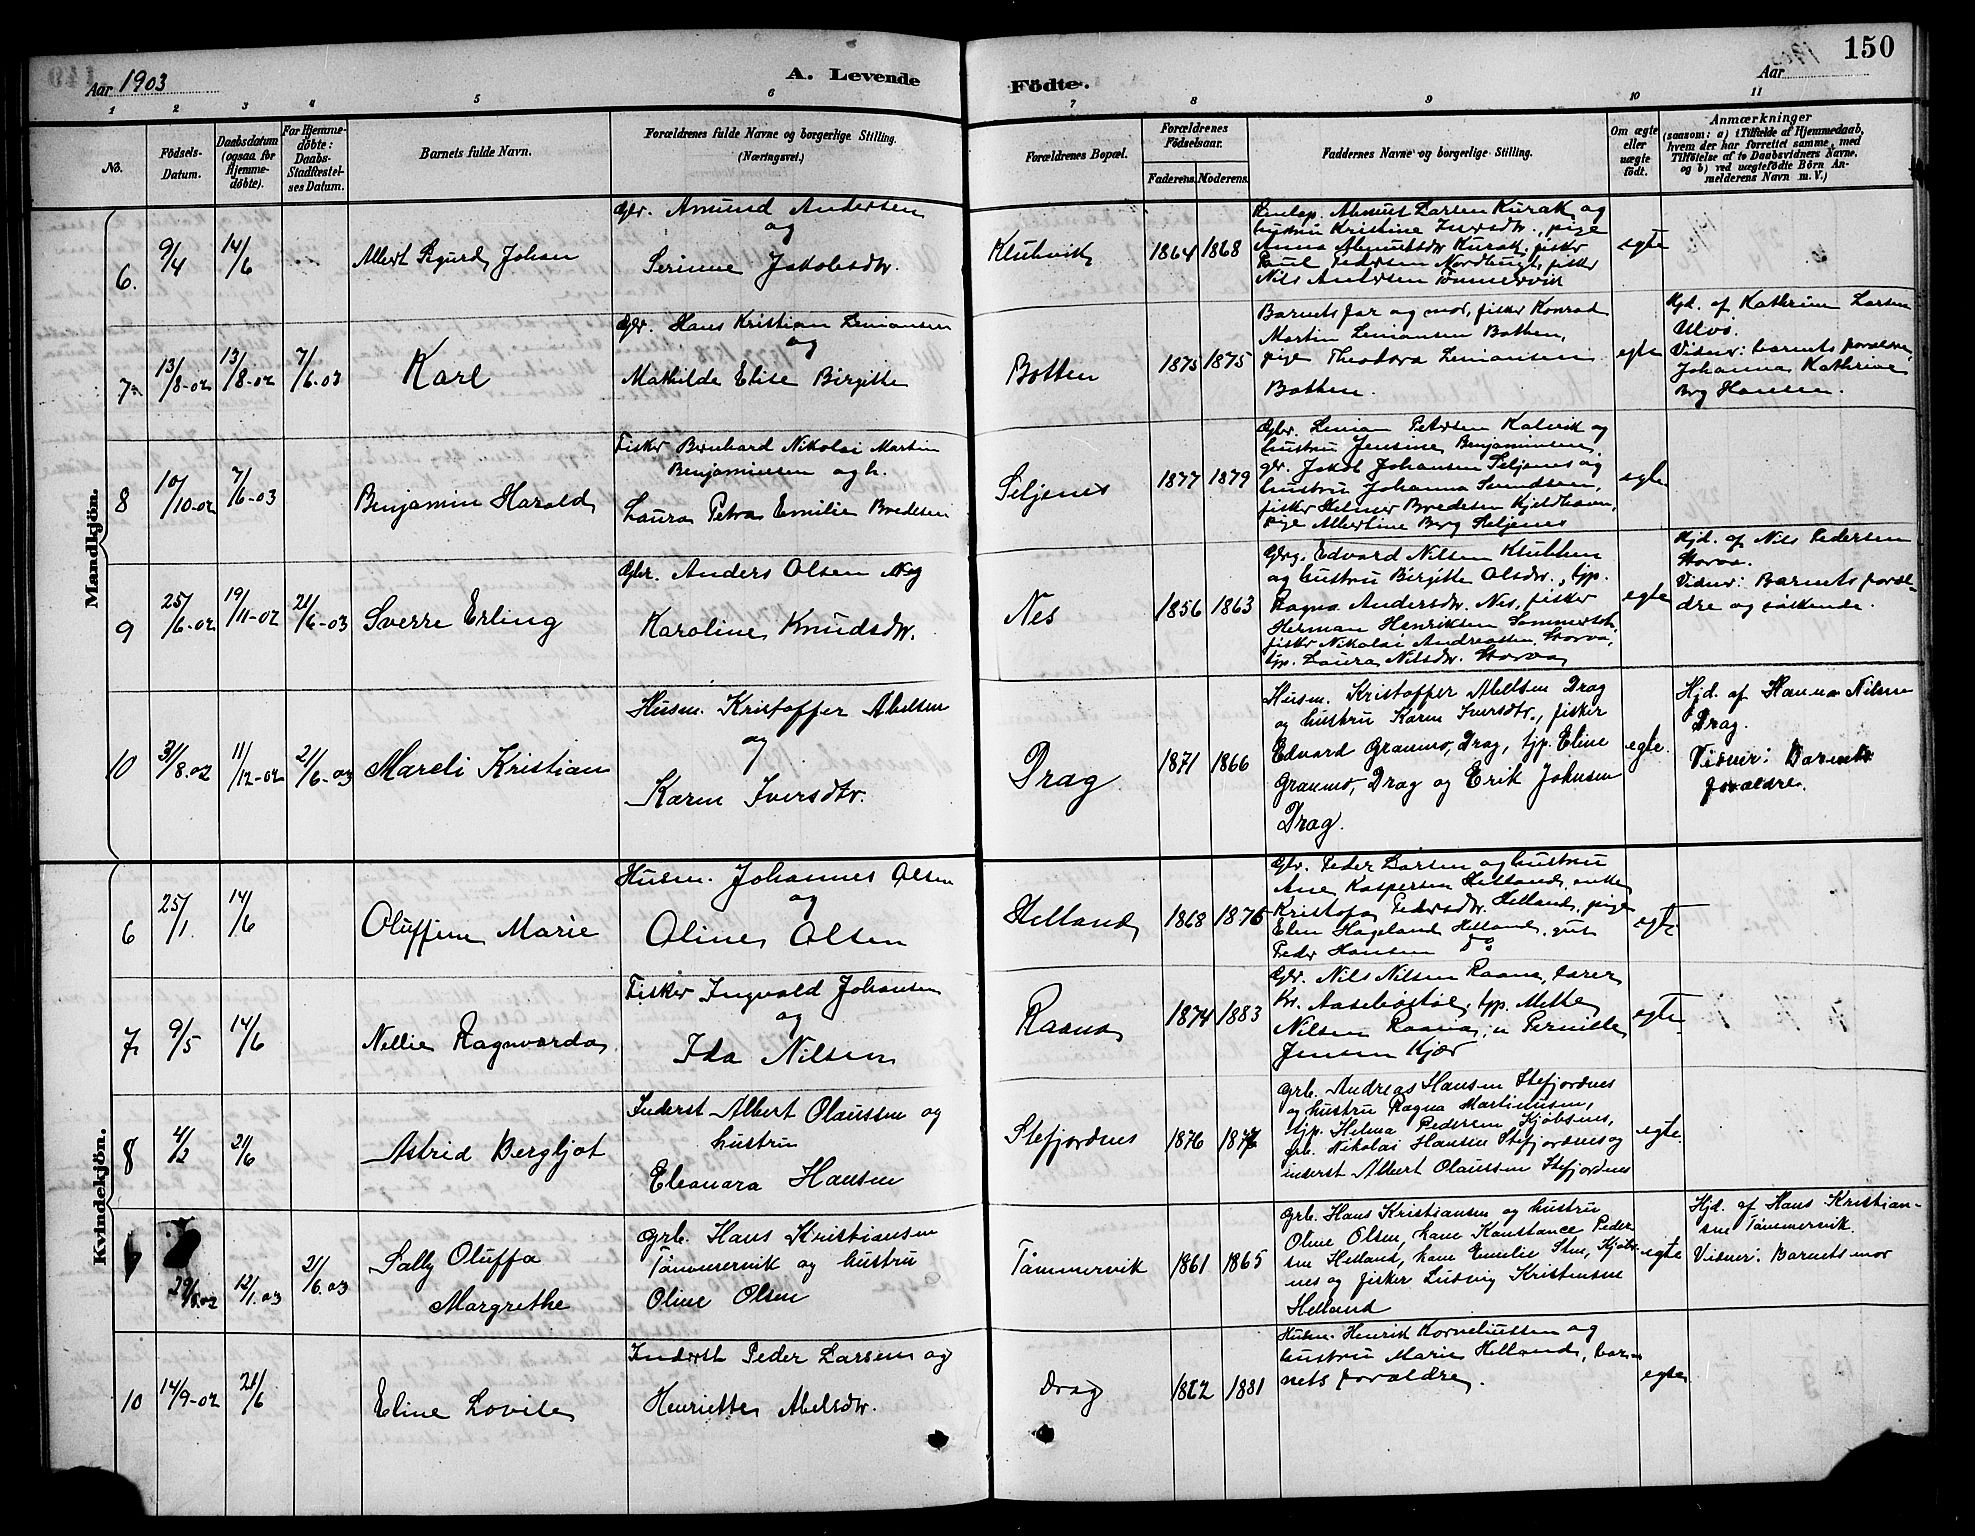 Aar 1903
A. Levende
Fødte.
Aar
150
1 2 3 4 5 6 7 8 9 10 11
No.
Fødsels-
Datum.
Daabsdatum
(ogsaa for
Hjemme-
døbte).
For Hjemme-
døbte:
Daabs-
Stadfæstel-
ses Datum.
Barnets fulde Navn.
Forældrenes fulde Navne og borgerlige Stilling.
(Næringsvei.)
Forældrenes Bopæl.
Forældrenes
Fødselsaar.
Faderens. Moderens.
Faddernes Navne og borgerlige Stilling.
Om ægte
eller
uægte
født.
Anmærkninger
(saasom: a) i Tilfælde af Hjemmedaab,
hvem der har forrettet samme, med
Tilføielse af to Daabsvidners Navne,
og b) ved uægtefødte Børn An-
melderens Navn m. V.)
Mandkjön.
6.
9/4
14/6
Albert Sigurd Johan
Gbr. Amund Andersen
og
Serinne Jakobsdtr.
Klubvik
1864 1868
Anna
Nils Andersen Tømmervik
egte
7
13/8-02
13/8-02
7/6-03
Karl
Gbr. Hans Kristian Liniansen
og
Mathilde Elise Birgitte
Botten
1875 1875
Barnets far og mor, fisker Konrad
Martin Liniansen Botten,
pige Theodora Liniansen
Botten.
egte
Hjd. af Kathrine Larsen
Ulvø.
Vidner: barnets forældre,
Johanna Kathrine
Berg Hansen.
8
10/10-02
7/6-03
Benjamin Harald
Fisker Bernhard Nikolai Martin
Benjaminsen og h.
Laura Petra Emilie Bredesen
Seljenes
1877 1879
Gbr. Linian Petersen Kalvik og
hustru Jensine Benjaminsen,
gbr. Jakob Johansen Seljenes og
hustru Johanna Svendsen,
fisker Helmer Bredesen Kjeldhavn,
pige Albertine Berg Seljenes
egte
9
25/6-02
19/11-02
21/6-03
Sverre Erling
Gbr. Anders Olsen Nes
Karoline Knudsdtr.
Nes
1856 1863
Gbrg. Edvard Nilsen Klubben
og hustru Birgitte Olsdtr., tjp.
Ragna Andersdtr. Nes, fisker
Herman Henriksen Sommerset,
fisker Nikolai Andreassen Storvo,
tjp. Laura Nilsdtr. Storvo
egte
Hjd. af Nils Pedersen
Storvo.
Vidner: Barnets foræl-
dre og søskende.
10
31/8.02
11/12-02
21/6-03
Mareli Kristian
Husm. Kristoffer Abelsen
og
Karen Iversdtr.
Drag
1871 1866
Husm. Kristoffer Abelsen Drag
og hustru Karen Iversdtr., fisker
Edvard Granmo, Drag, tjp. Eline
Granmo, Drag og Erik Johnsen
Drag.
egte.
Hjd. af Hanna Nilsen
Drag.
Vidner: Barnets
forældre.
Kvindekjön.
6
25/1.
14/6
Oluffine Marie
Husm. Johannes Olsen
og
Oline Olsen
Helland
1868 1876
Gbr. Peder Larsen og hustru
Ane Kaspersen Helland, enke
Kristofa Pedersdtr. Helland, pige
Elen Hageland Helland, gut
Peder Hansen do
egte
7
9/5
14/6
Nellie Ragnvarda
Fisker Ingvald Johansen
og
Ida Nilsen
Raana
1874 1883
Gbr. Nils Nilsen Raana, lærer
Kr. Aasebøstøl, tjp. Mette
Nilsen Raana, " Pernille
Jensen Kjær
egte
8
4/2
21/6
Astrid Bergljot
Inderst Albert Olaussen og
hustru
Eleonora Hansen
Stefjordnes
1876 1877
grb. Andreas Hansen Stefjordnes
og hustru Ragna Martinusen,
tjp. Helena Pedersen Kjøbsnes,
grb. Nikolai Hansen Stefjordnes og
inderst Albert Olaussen Stefjordnes
egte.
12/1.03
21/6.03
Sally Oluffa
Margrethe
grb. Hans Kristiansen
Tømmervik og hustru
Oline Olsen
Tømmervik
1861 1865
grb. Hans Kristiansen og hustru
Oline Olsen, kone Konstance Peder-
sen Helland, kone Emelie Sten, Kjøbs-
nes og fisker Ludvig Kristensen
Helland
egte
Hjd. af Hans Kristian-
sen Tømmervik.
Vidner: Barnets mor
10
14/9-02
21/6
Eline Lovise
Inderst Peder Larsen og
Henriette Abelsdtr.
Drag
1862 1881
Husm. Henrik Korneliussen og
hustru Marie Helland, bar-
nets forældre.
egte